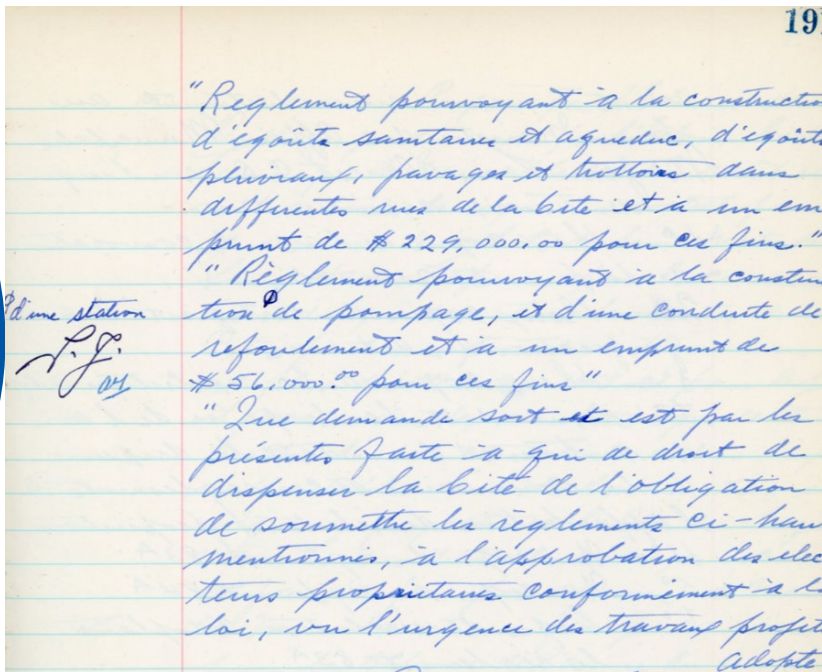 19
"Reglement pourvoyant à la constructio
d'égoûts sanitaires et aqueduc, d'égoûts
pluviaux, pavages et trottoirs dans
differentes rues de la Cité et à un em
prunt de $ 229,000.00 pour ces fins."
"Règlement pourvoyant à la construc
d'une station
tion de pompage, et d'une conduite de
refoulement et à un emprunt de
$ 56,000.00 pour ces fins"
"Que demande soit et est par les
présentes faite à qui de droit de
dispenser la Cité de l'obligation
de soumettre les règlements ci-hau
mentionnés, à l'approbation des élec
teurs propriétaires conformément à l
loi, vu l'urgence des travaux projet
adopté